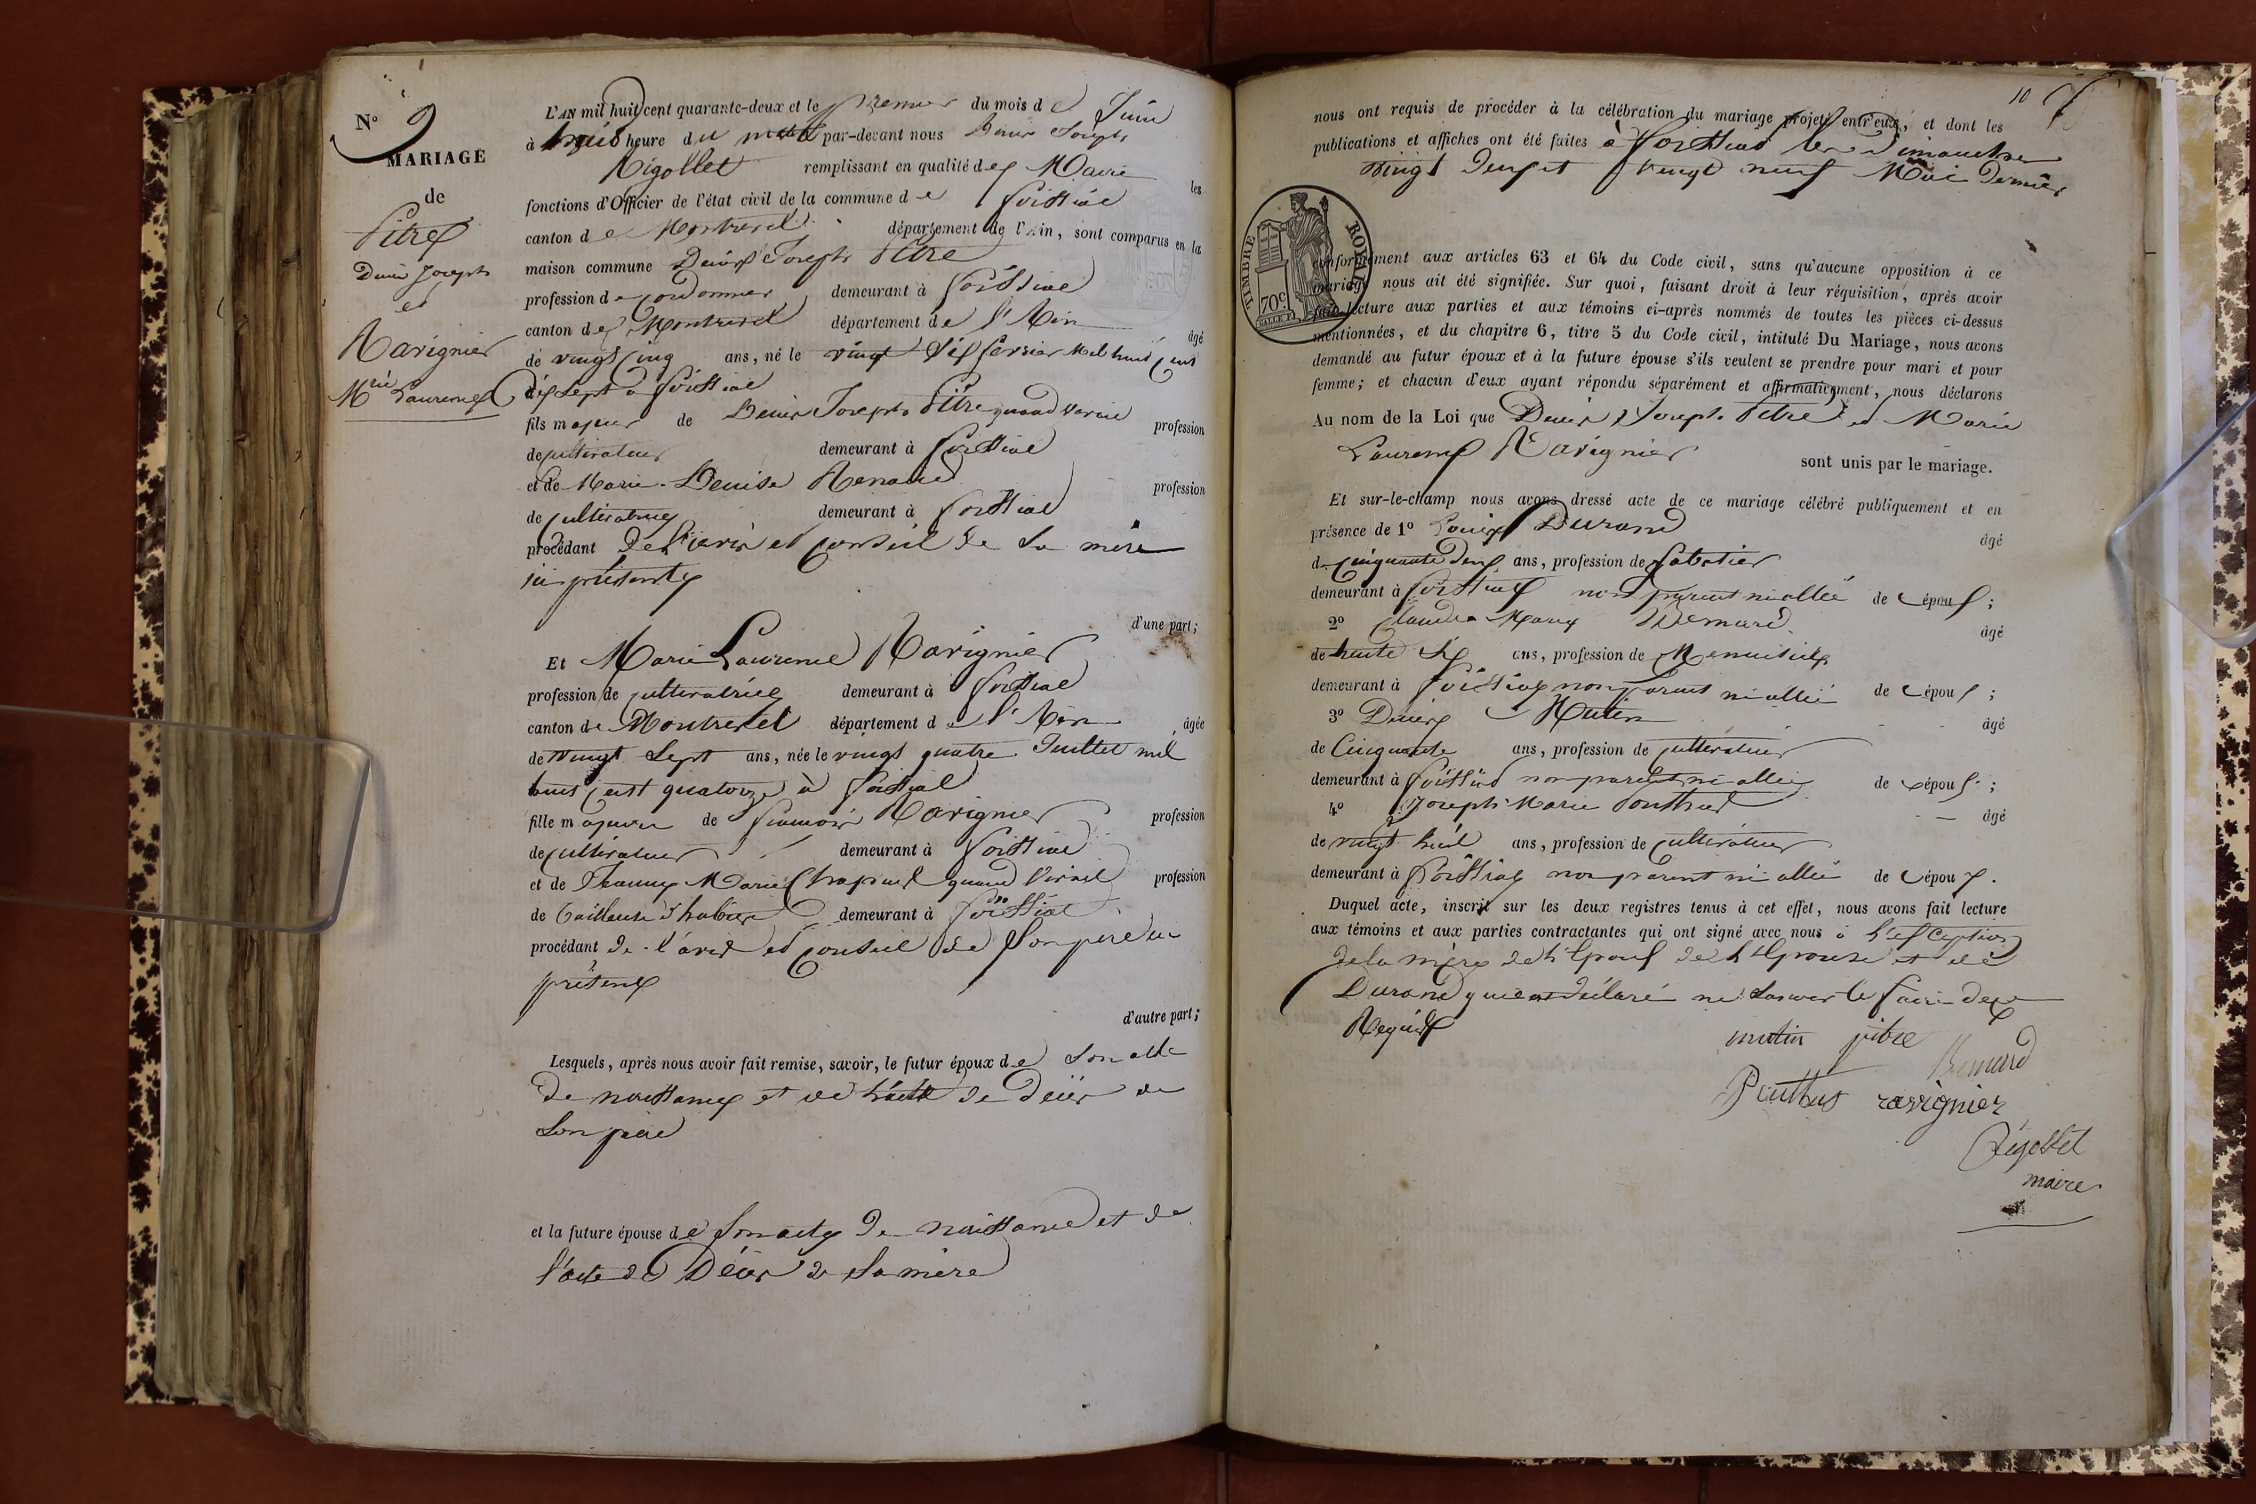 N° 9
MARIAGE
de
Pitre
Denis Joseph
et
Ravignier
Mrie Laurence
L'AN mil huit cent quarante-deux et le premier du mois de Juin
à trois heure du matin par-devant nous Denis Joseph
Rigollet remplissant en qualité de Maire les
fonctions d'Officier de l'état civil de la commune de Foissiat
canton de Montrevel département de l'Ain, sont comparus en la
maison commune Denis Joseph Pitre
profession de Cordonnier demeurant à Foissiat
canton de Montrevel département de l'Ain âgé
de vingt cinq ans, né le vingt six fevrier mil huit cent
dix sept à Foissiat
fils majeur de Denis Joseph Pitre quand vivait profession
de cultivateur demeurant à Foissiat
et de Marie Denise Renaud profession
de cultivatrice demeurant à Foissiat
procédant de l'avis et conseil de sa mère
ici présente
d'une part;
Et Marie Laurence Ravignier
profession de cultivatrice demeurant à Foissiat
canton de Montrevel département de l'Ain âgée
de vingt sept ans, née le vingt quatre Juillet mil
huit cent quatorze à Foissiat
fille majeure de François Ravignier profession
de cultivateur demeurant à Foissiat
et de Jeanne Marie Chapuel quand vivait profession
de tailleuse d'habits demeurant à Foissiat
procédant de l'avis et conseil de son père ici
présent
d'autre part;
Lesquels, après nous avoir fait remise, savoir, le futur époux de son acte
de naissance et de l'acte de décès de
son père
et la future épouse de son acte de naissance et de
l'acte de Décès de sa mère
10
nous ont requis de procéder à la célébration du mariage projeté entr'eux, et dont les
publications et affiches ont été faites à Foissiat les Dimanches
vingt deux et vingt neuf Mai dernier
TIMBRE ROYAL
70c
conformément aux articles 63 et 64 du Code civil, sans qu'aucune opposition à ce
mariage nous ait été signifiée. Sur quoi, faisant droit à leur réquisition, après avoir
fait lecture aux parties et aux témoins ci-après nommés de toutes les pièces ci-dessus
mentionnées, et du chapitre 6, titre 5 du Code civil, intitulé Du Mariage, nous avons
demandé au futur époux et à la future épouse s'ils veulent se prendre pour mari et pour
femme; et chacun d'eux ayant répondu séparément et affirmativement, nous déclarons
Au nom de la Loi que Denis Joseph Pitre et Marie
Laurence Ravignier sont unis par le mariage.
Et sur-le-champ nous avons dressé acte de ce mariage célébré publiquement et en
présence de 1° Louis Durand âgé
de cinquante deux ans, profession de sabotier
demeurant à Foissiat non parent ni allié de l'époux;
2° Claude Marie âgé
de trente six ans, profession de Menuisier
demeurant à Foissiat non parent ni allié de l'époux;
3° Denis Mutin âgé
de Cinquante ans, profession de cultivateur
demeurant à Foissiat non parent ni allié de l'époux;
4° Joseph Marie âgé
de vingt huit ans, profession de cultivateur
demeurant à Foissiat non parent ni allié de l'époux.
Duquel acte, inscrit sur les deux registres tenus à cet effet, nous avons fait lecture
aux témoins et aux parties contractantes qui ont signé avec nous à l'exception
de la mère de l'Epoux de l'Epouse et de
Durand qui ont déclaré ne savoir le faire de ce
Requis
mutin pitre
ravignier
Rigollet
maire